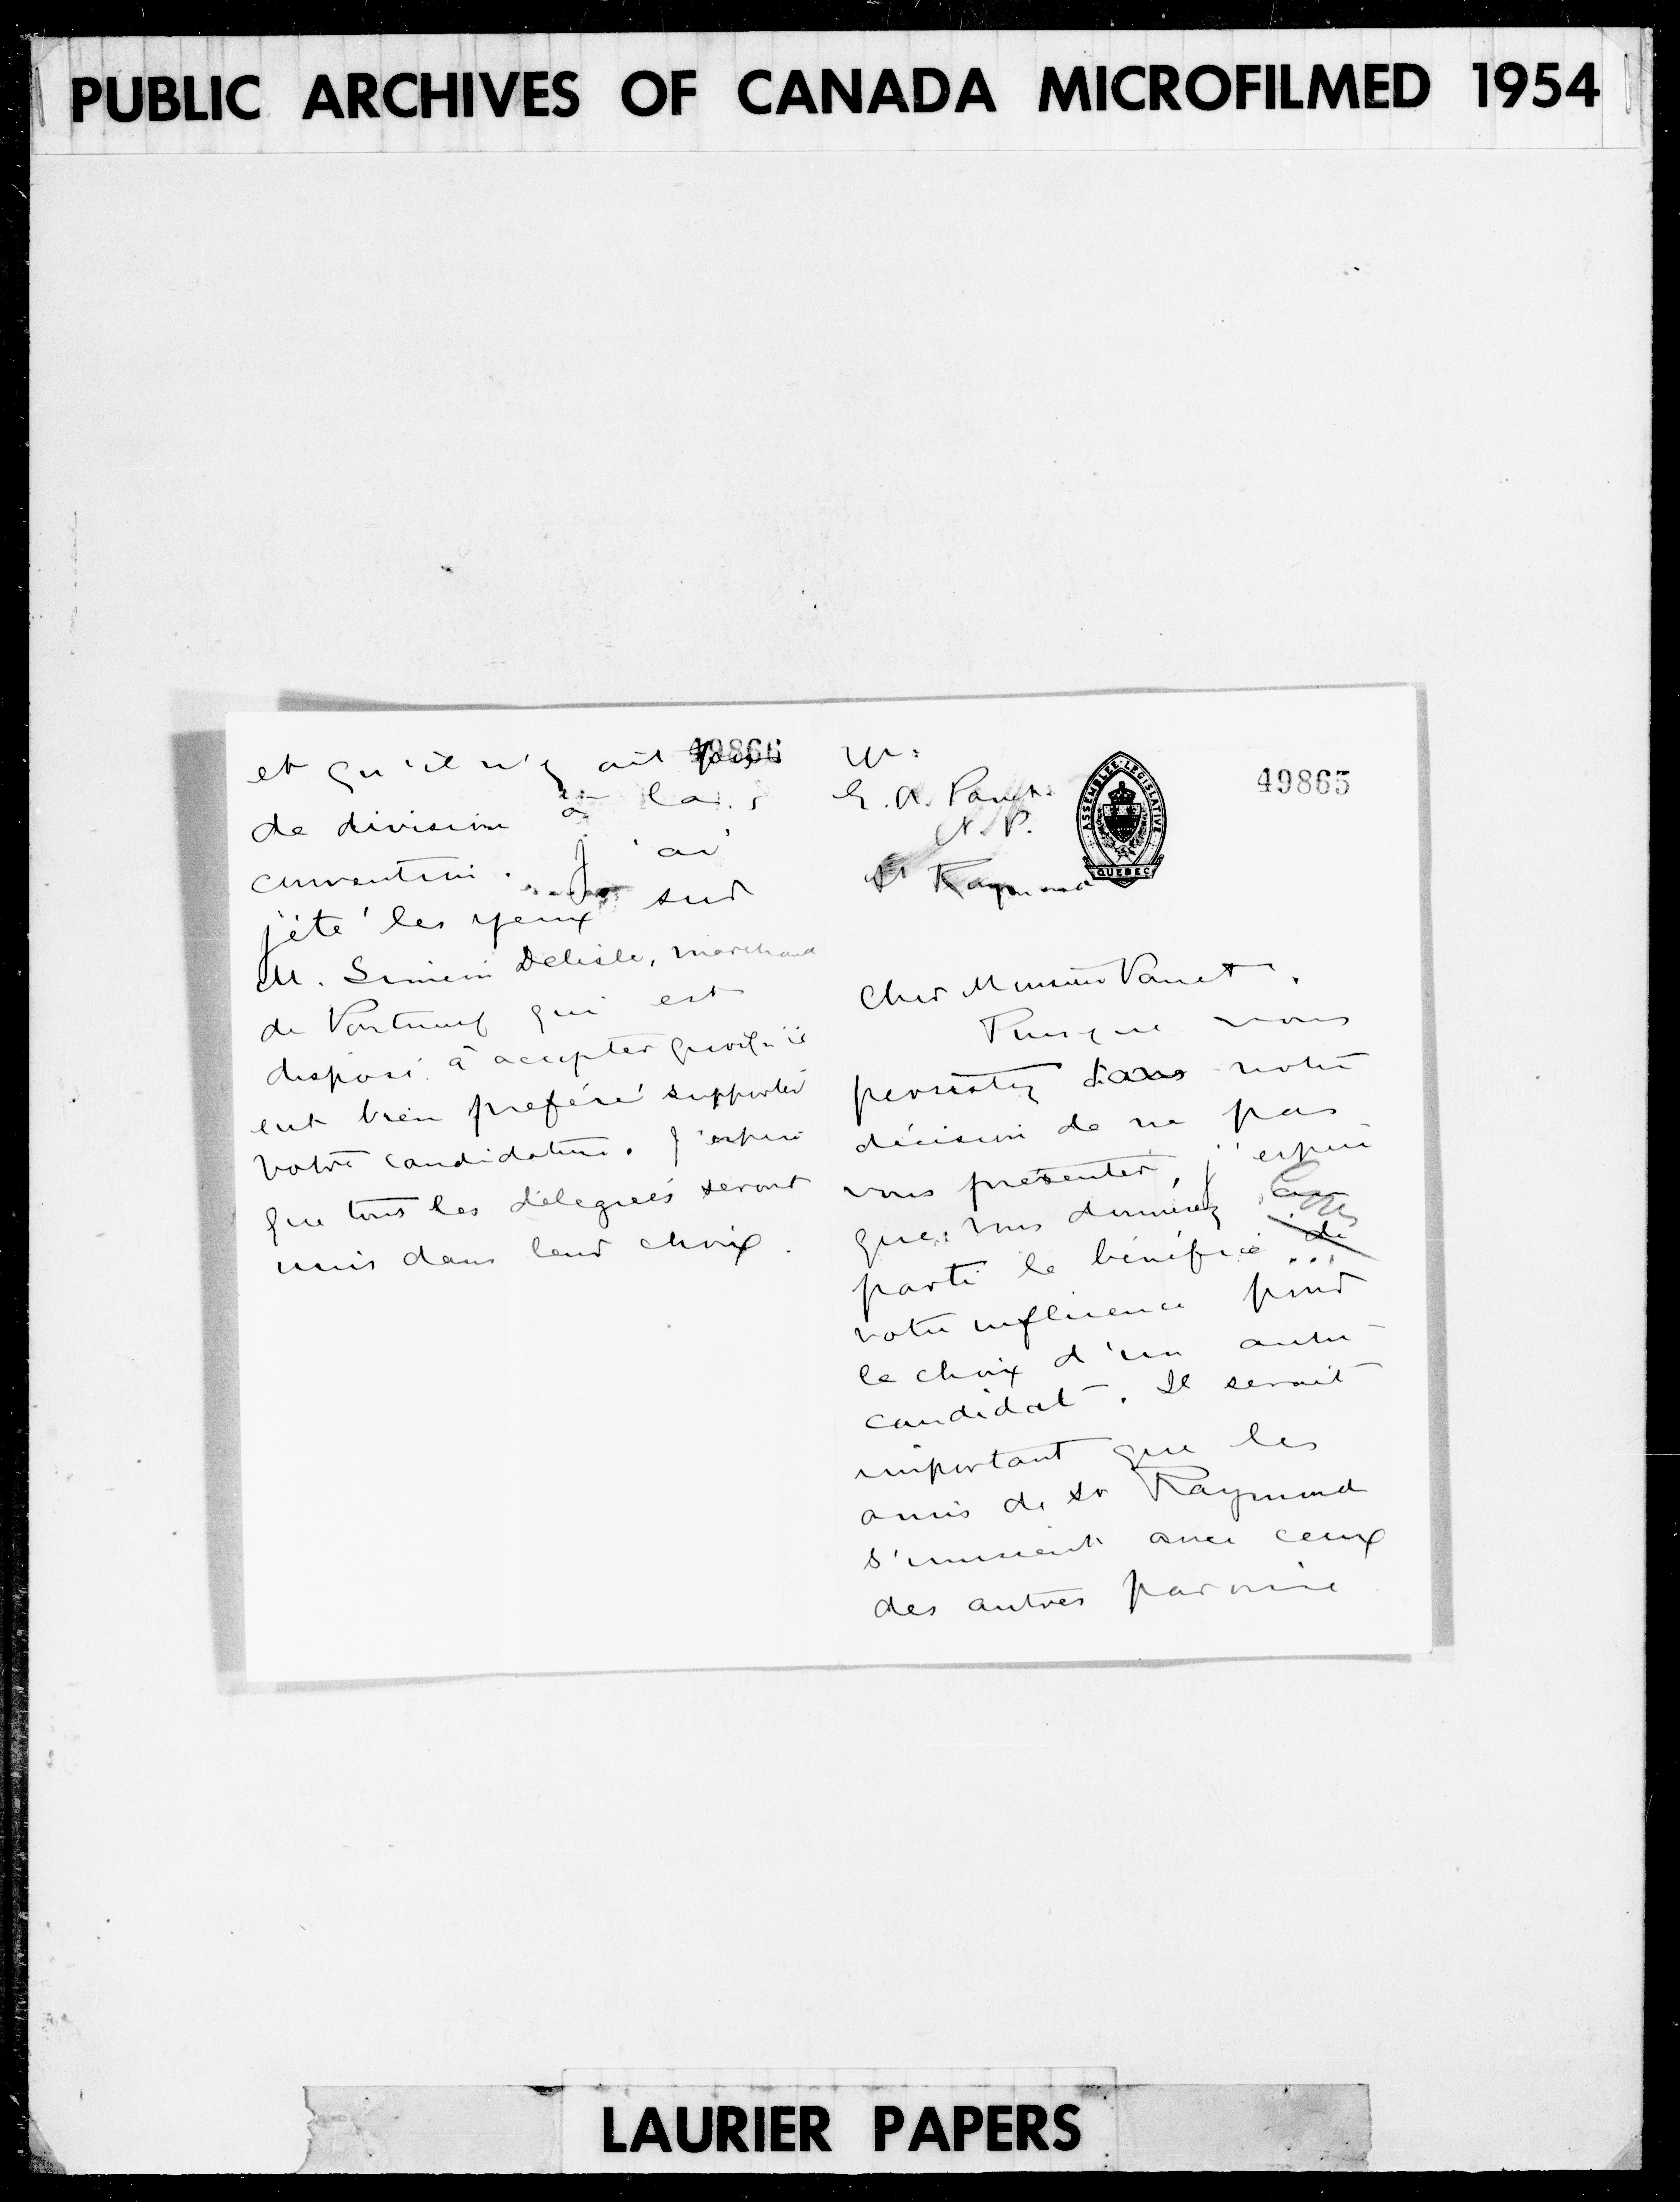 PUBLIC ARCHIVES OF CANADA MICROFILMED 1954
49866
et qu'il n'y ait pas
de division à la
convention. J'ai
jété les yeux sur
M. Simeon Delisle, marchand
de Portneuf qui est
disposé à accepter quoiqu'il
eut bien préféré supporter
votre candidature. J'espère
que tous les délégués seront
unis dans leur choix.
49865
M.
E. A. Panet
N. P.
St Raymond
ASSEMBLEE LEGISLATIVE
QUEBEC
Cher Monsieur Panet.
Puisque vous
persistez dans votre
décision de ne pas
vous présenter, j'espère
que vous donnerez au
parti le bénéfice de
votre influence pour
le choix d'un autre
candidat. Il serait
important que les
amis de St Raymond
s'unissent avec ceux
des autres paroisse
LAURIER PAPERS